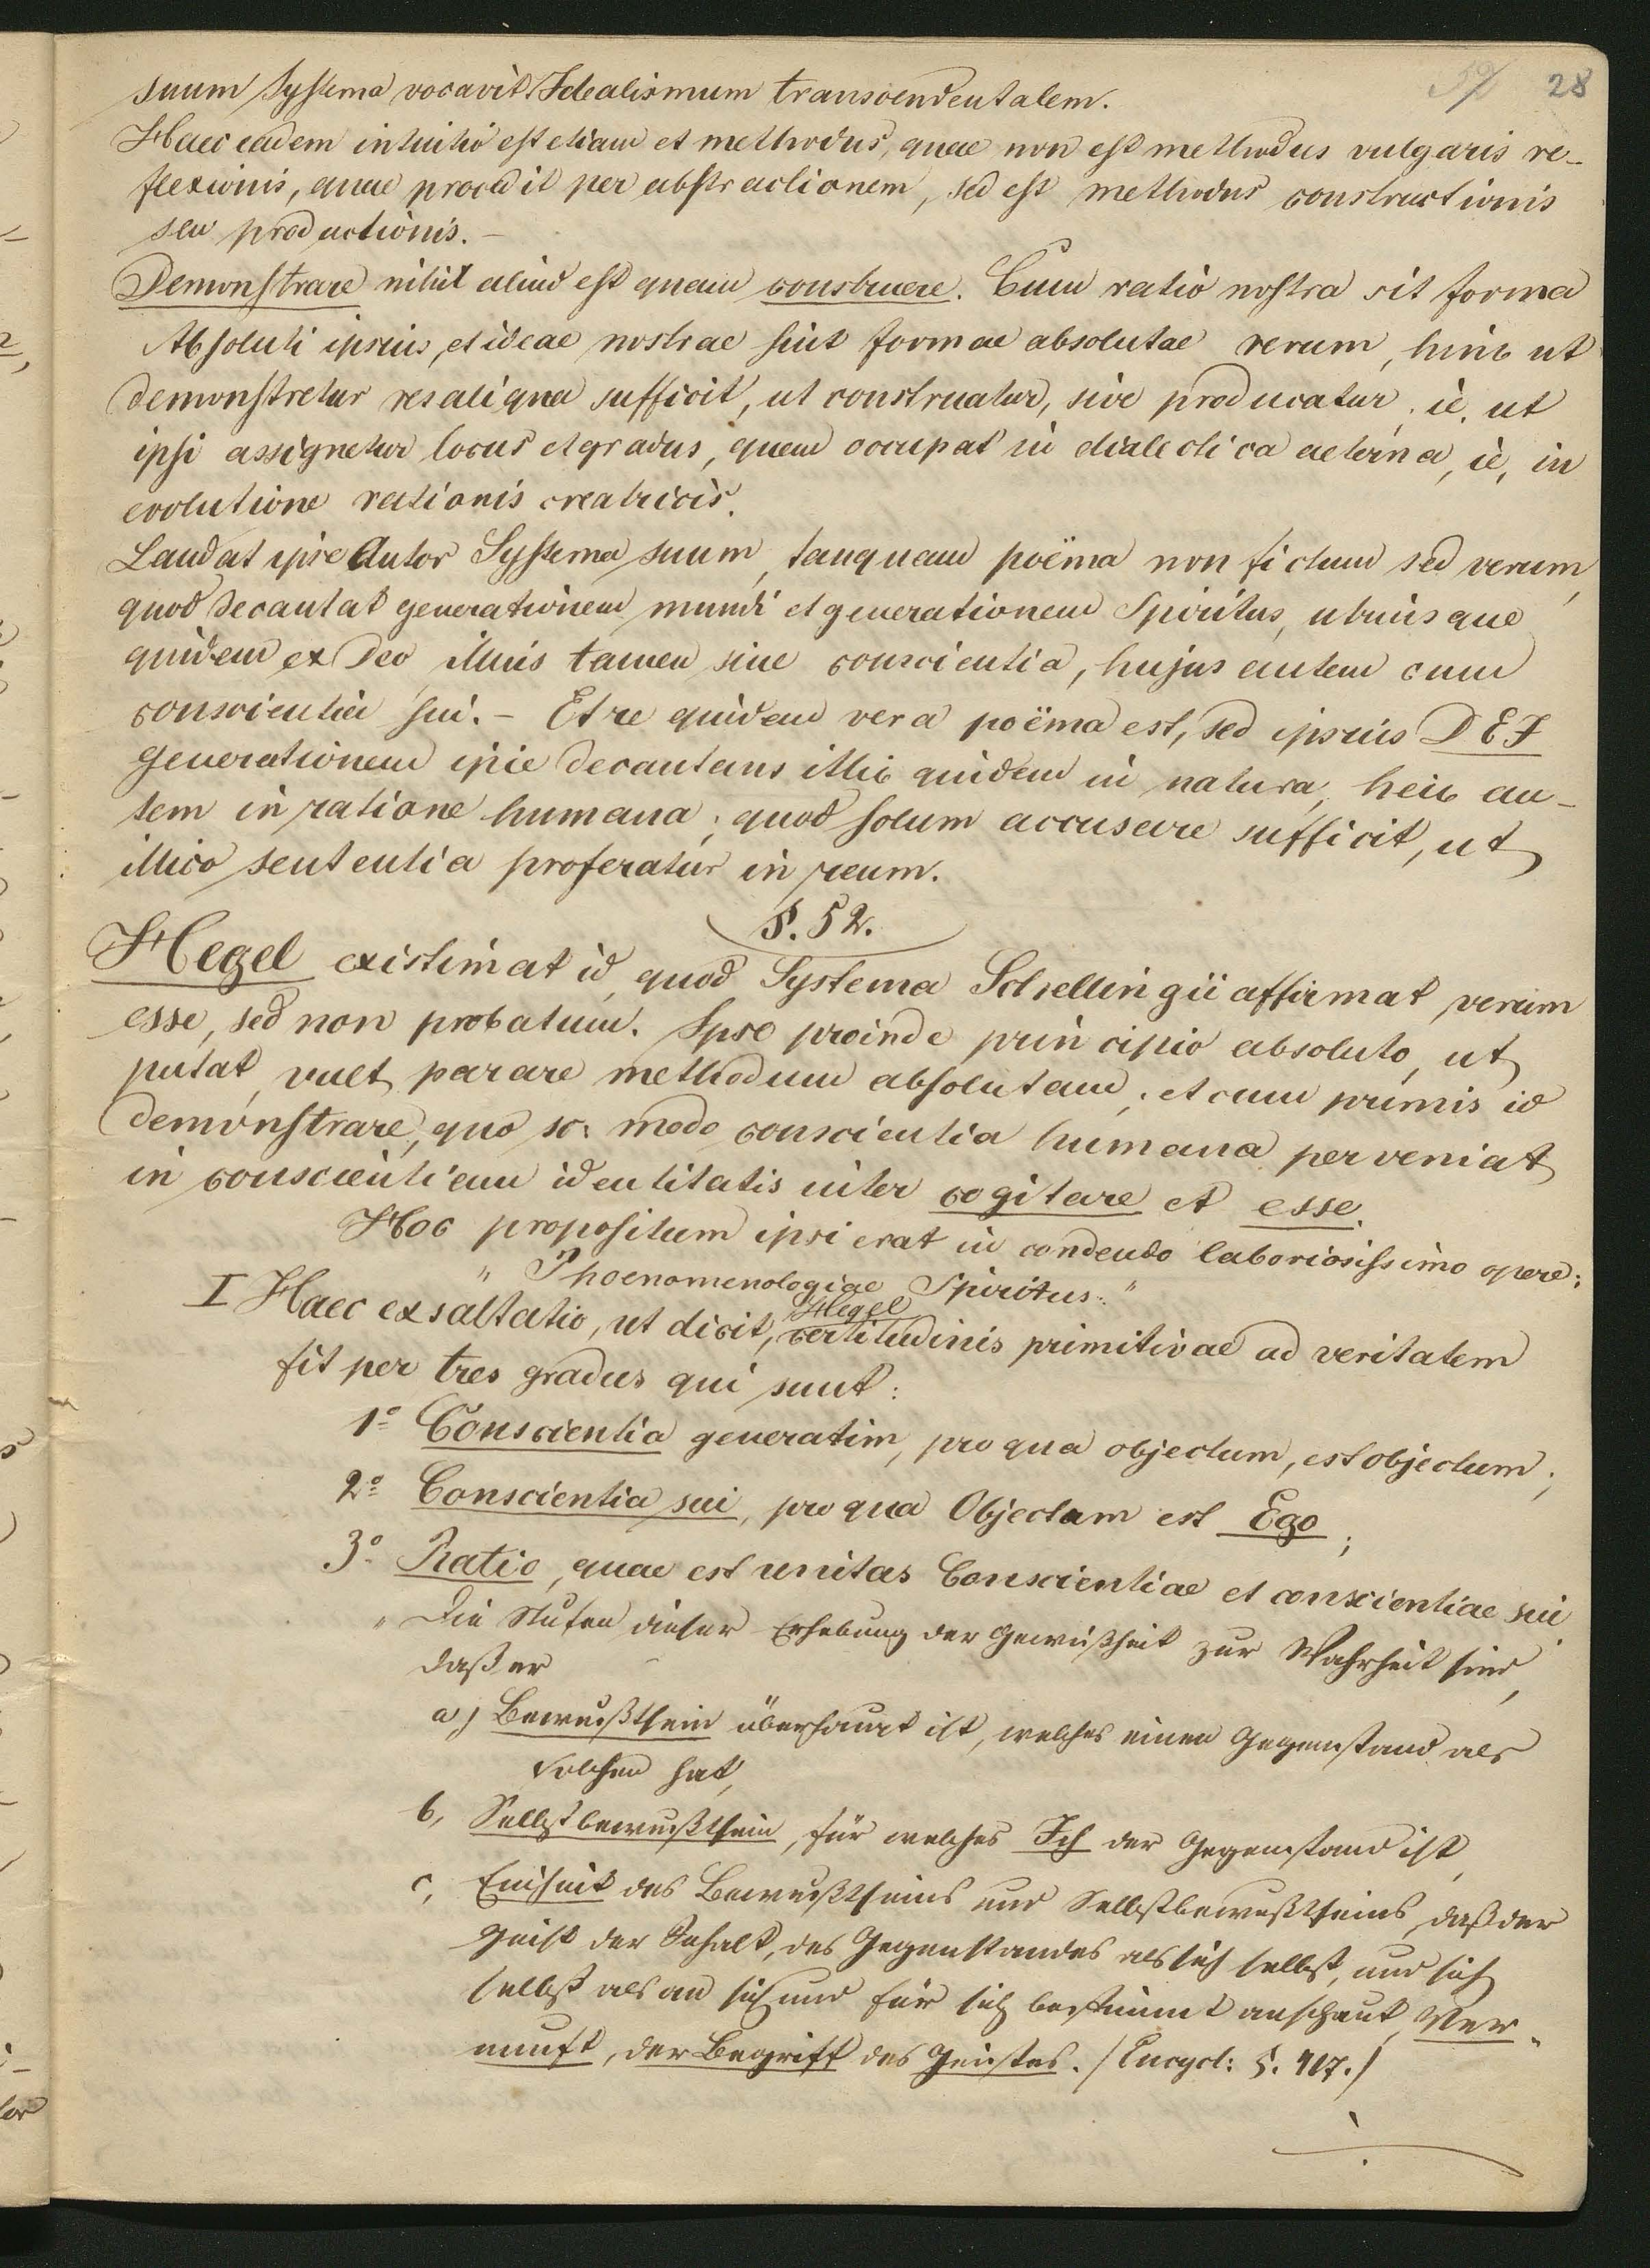 28
suum Systema vocavit Idealismum transcendentalem.
Haec eadem intuitio est etiam et methodus, quae non est methodus vulgaris re-
flexionis, quae procedit per abstractionem, sed est methodus constructionis
seu productionis. –
Demonstrare nihil aliud est quam construere. Cum ratio nostra sit forma
Absoluti ipsius, et ideae nostrae sint formae absolutae rerum, hinc ut
demonstretur res aliqua sufficit, ut construatur, sive producatur, i.e. ut
ipsi assignetur locus et gradus, quem occupat in dialectica aeterna, i.e. in
evolutione rationis creatricis.
Laudat ipse Autor Systema suum, tanquam poëma non fictum sed verum,
quod decantat generationem mundi et generationem Spiritus, utriusque
quidem ex Deo illius tamen sine conscientia, hujus autem cum
conscientia sui. – Et re quidem vera poëma est, sed ipsius DEI
generationem ipse decantans illic quidem in natura, heic au-
tem in ratione humana; quod solum accusare sufficit, ut
illico sententia proferatur in reum.
§. 52.
Hegel existimat id, quod Systema Schellingii affirmat verum
esse, sed non probatum. Ipse proinde principio absoluto, ut
putat, vult parare methodum absolutam; et cum primis id
demonstrare, quo sc: modo conscientia humana perveniat
in conscientiam identitatis inter cogitare et esse.
Hoc propositum ipsi erat in condendo laboriosissimo opere:
"Phoenomenologiae Spiritus."
Hegel
I Haec exsaltatio, ut dicit, certitudinis primitivae ad veritatem
fit per tres gradus qui sunt:
1º Conscientia generatim, pro qua objectum, est objectum;
2º Conscientia sui, pro qua Objectum est Ego;
3º Ratio, quae est unitas Conscientiae et conscientiae sui.
"Die Stufen dieser Erhebung der Gewißheit zur Wahrheit sind,
daß er
a) Bewußtsein überhaupt ist, welches einen Gegenstand als
solchen hat,
b, Selbstbewußtsein, für welches Ich der Gegenstand ist,
c, Einheit des Bewußtseins und Selbstbewußtseins, daß der
Geist der Inhalt, des Gegenstandes als sich selbst, und sich
selbst als an sich und für sich bestimmt anschaut, Ver-
nunft, der Begriff des Geistes. /Encycl: §. 417./